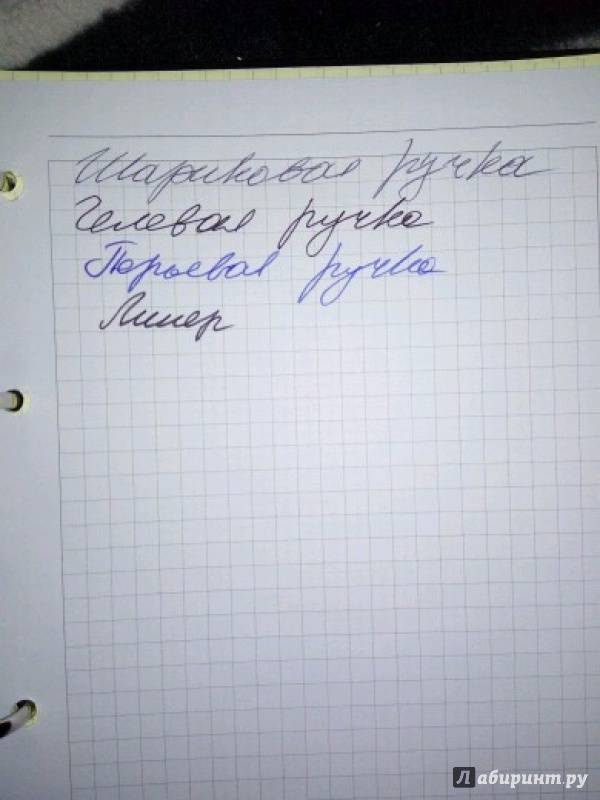 Шариковая ручка
Гелевая ручка
Перьевая ручка
Линер
Лабиринт.ру